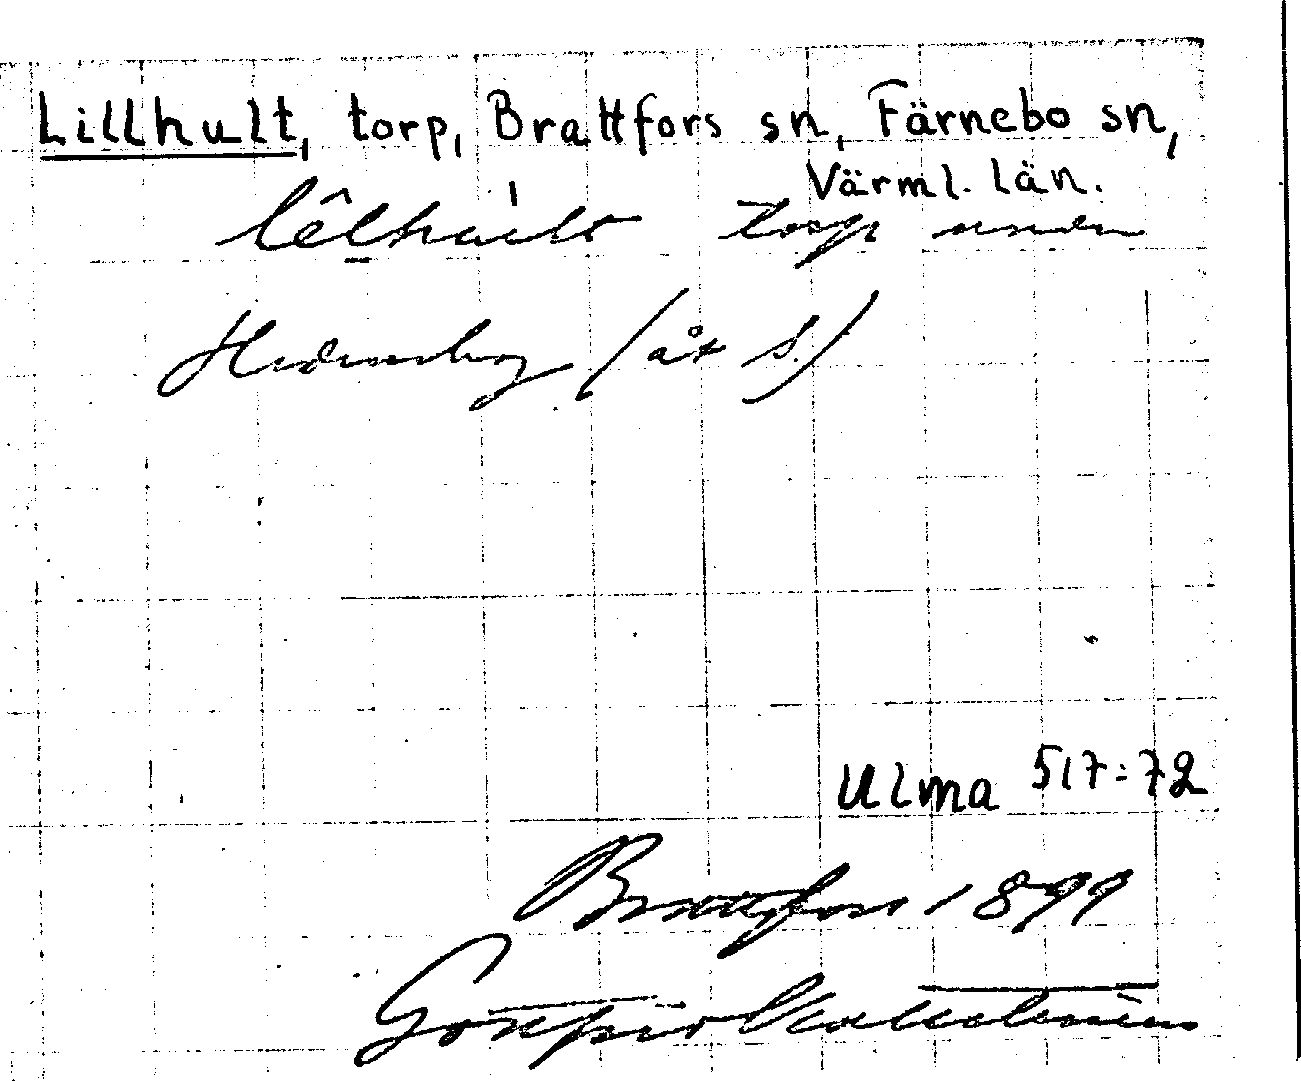 Lillhult, torp, Brattfors sn, Färnebo sn,
Värml. län.
lêlhùlt torp under
Hedensberg (åt S.)
Ulma 517:72
Brattfors 1899
Gottfrid Kallstenius